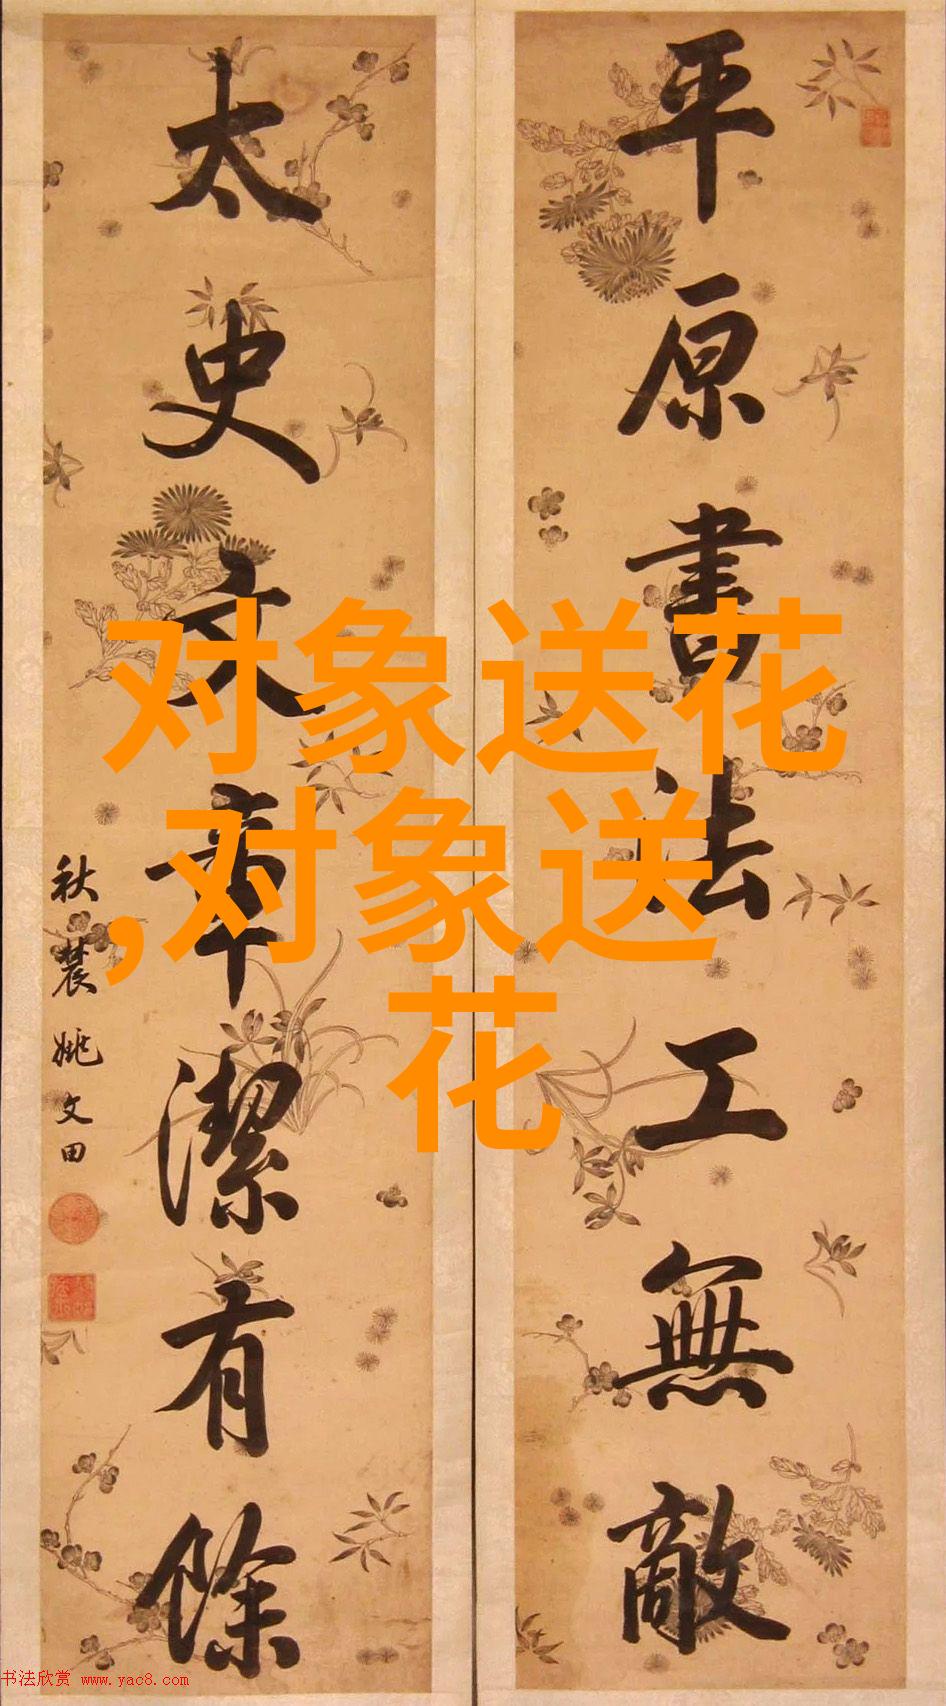 平原書法工無敵
太史文章潔有餘
秋農姚文田
对象送花
,对象送
花
书法欣赏 www.yac8.com